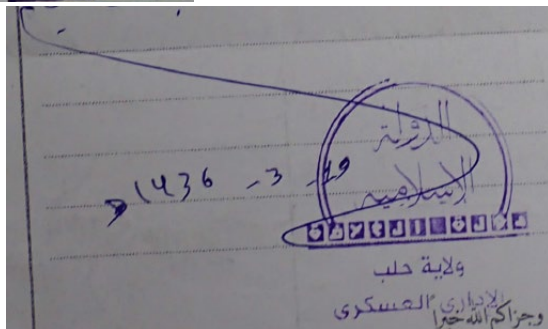 1436 - 3 - 19 هـ
الدولة
الإسلامية
ولاية حلب
الإداري العسكري
وجزاكم الله خيرا